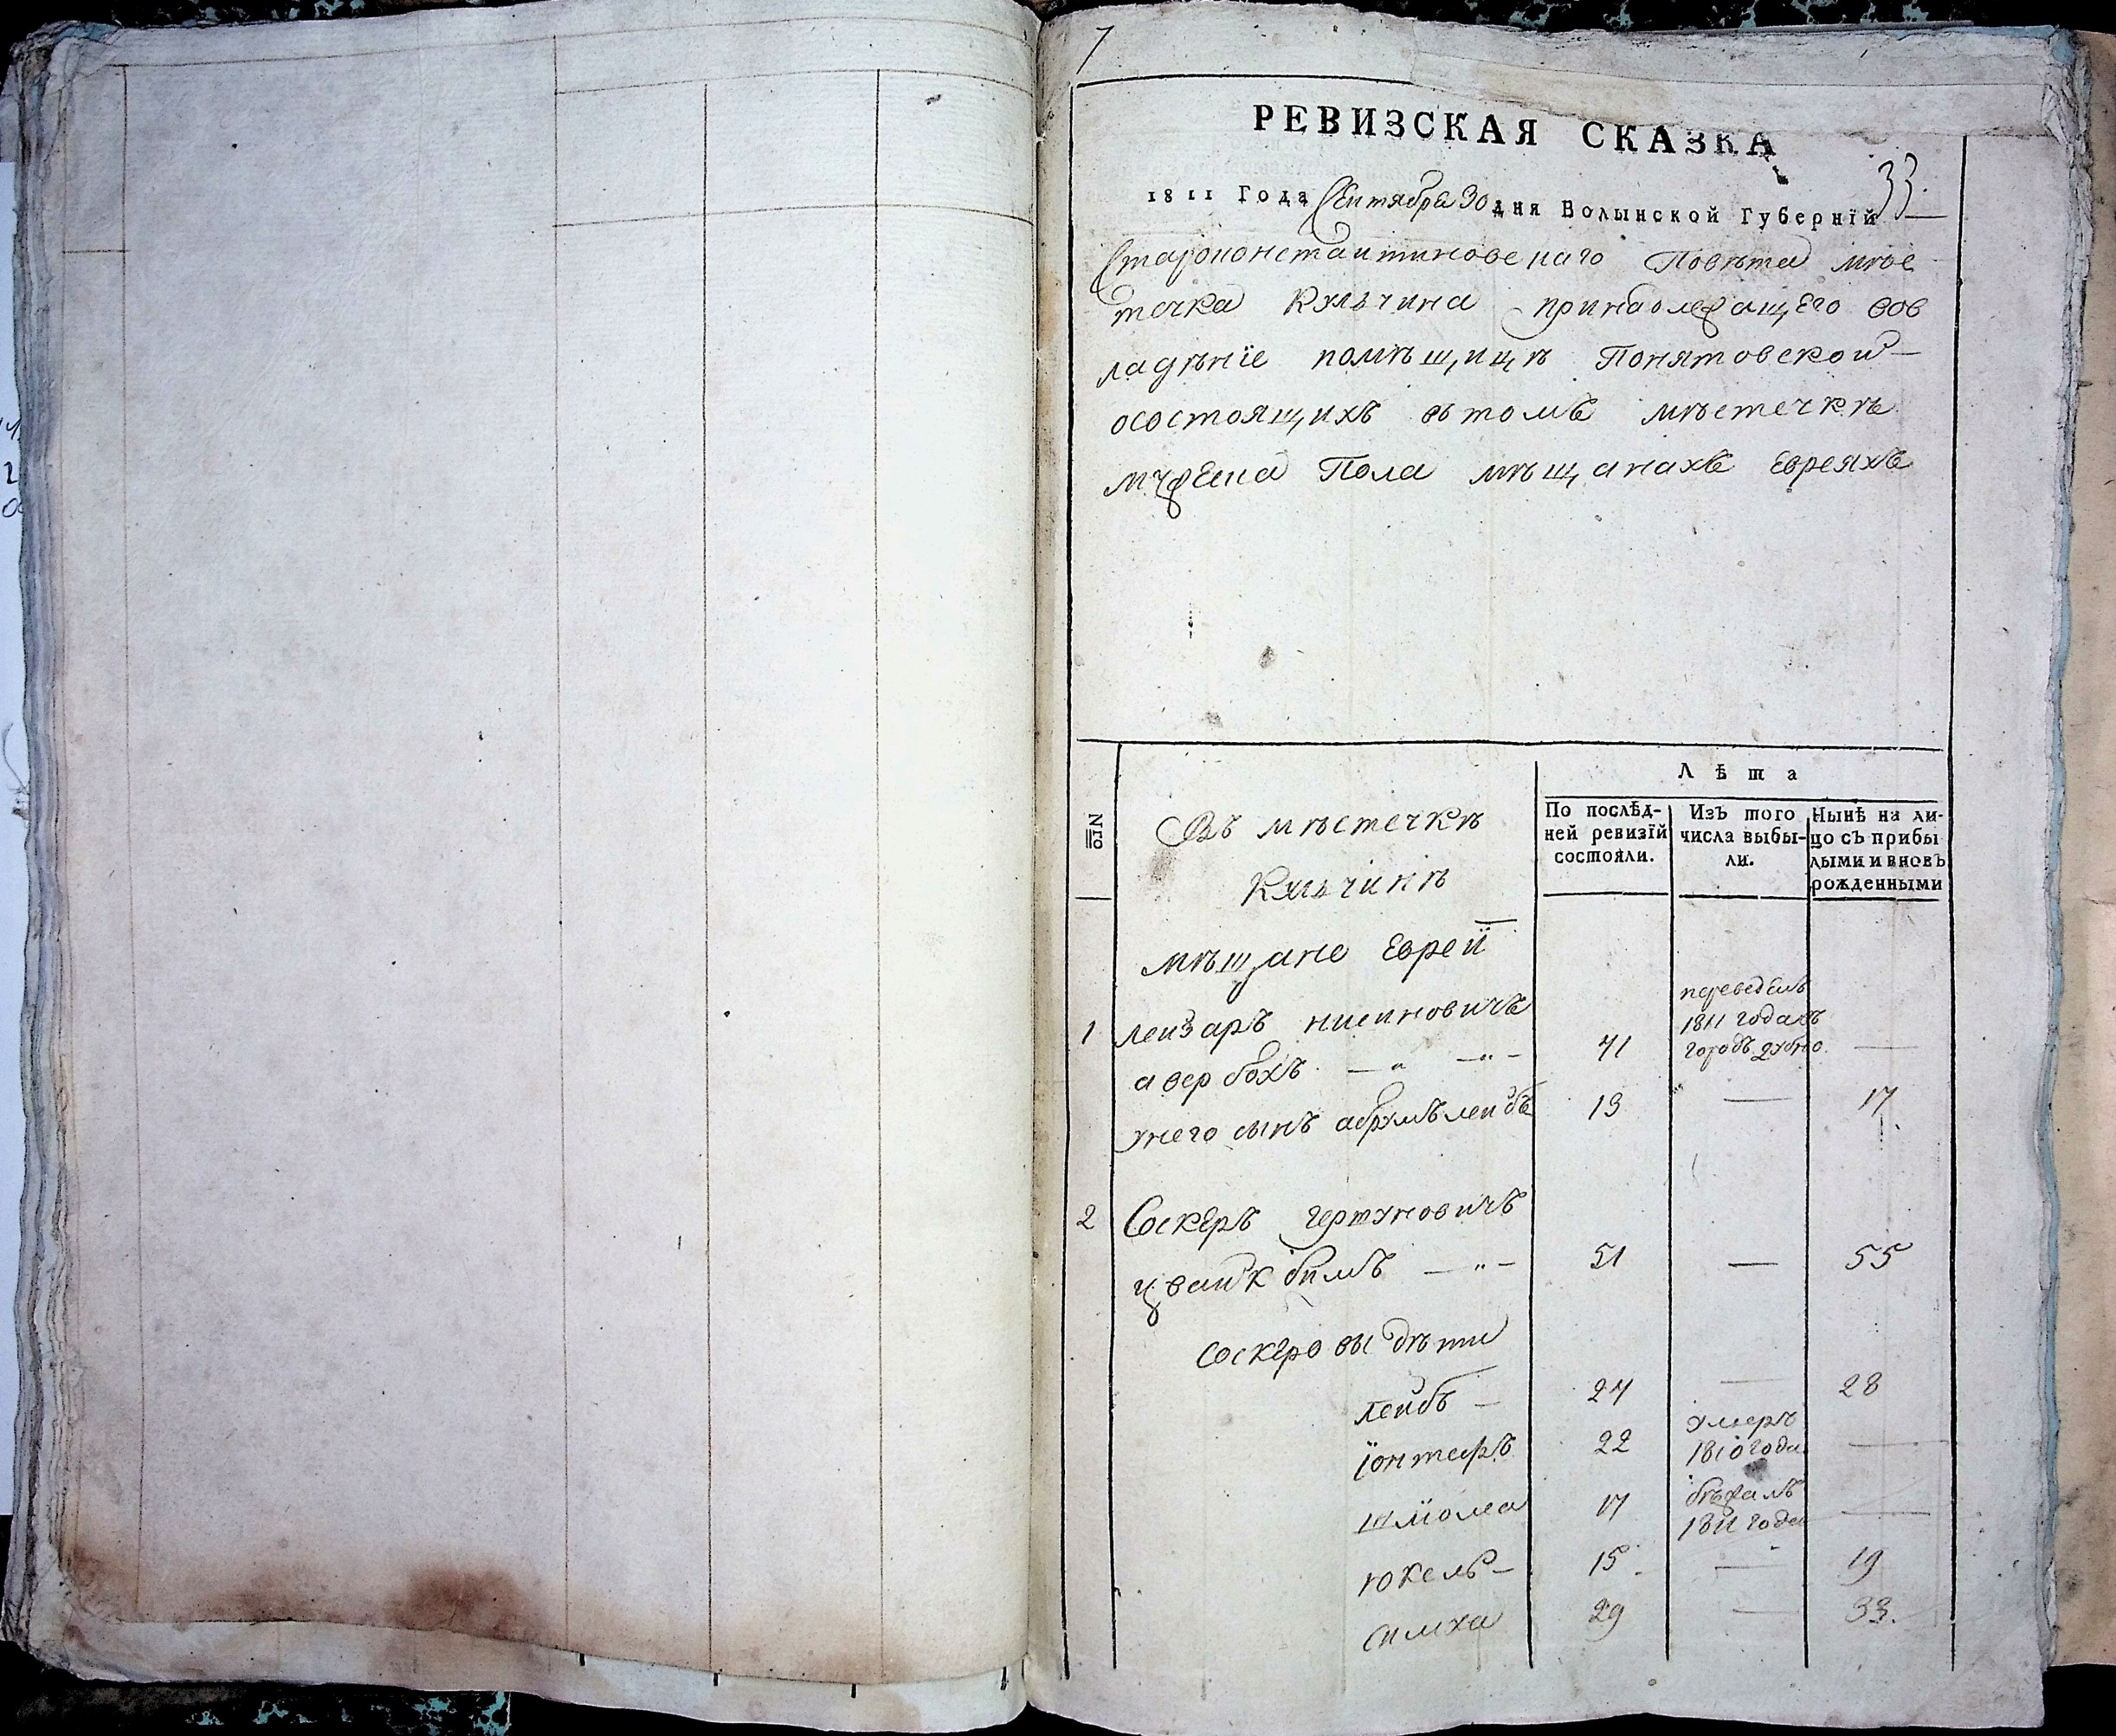 7
РЕВИЗСКАЯ СКАЗКА
33.
1811 Года Сентября 30 дня Волынской Губернїй
Староконстантиновскаго Повѣта мѣс
течка Кульчина принадлежащего вов
ладѣнїе помѣщицѣ Понятовской
осостоящихъ втомъ мѣстечкѣ
мужеска Пола мѣщанахъ Евреяхъ
№го
Въ мѣстечкѣ
Кульчинѣ
мѣщане Еврей
Лѣта
По послѣд-
ней ревизїй
состояли.
Изъ того
числа выбы-
ли.
Нынѣ на ли-
цо съ прибы
лыми и вновь
рожденными
1 Лейзаръ нисиновичъ
авербохъ — " — 71 переведенъ
1811 года въ
городъ дубно —
унего сынъ абрумъ лейбъ 13 — 17
2 Соскеръ гертуновичъ
цвайкбимъ — " — 51 — 55
Соскеровы дѣти
Лейбъ — 24 — 28
їонтефъ 22 умеръ
1810 года —
шлїома 17 бѣжалъ
1811 года —
юкель — 15 — 19
Симха 29 — 33.